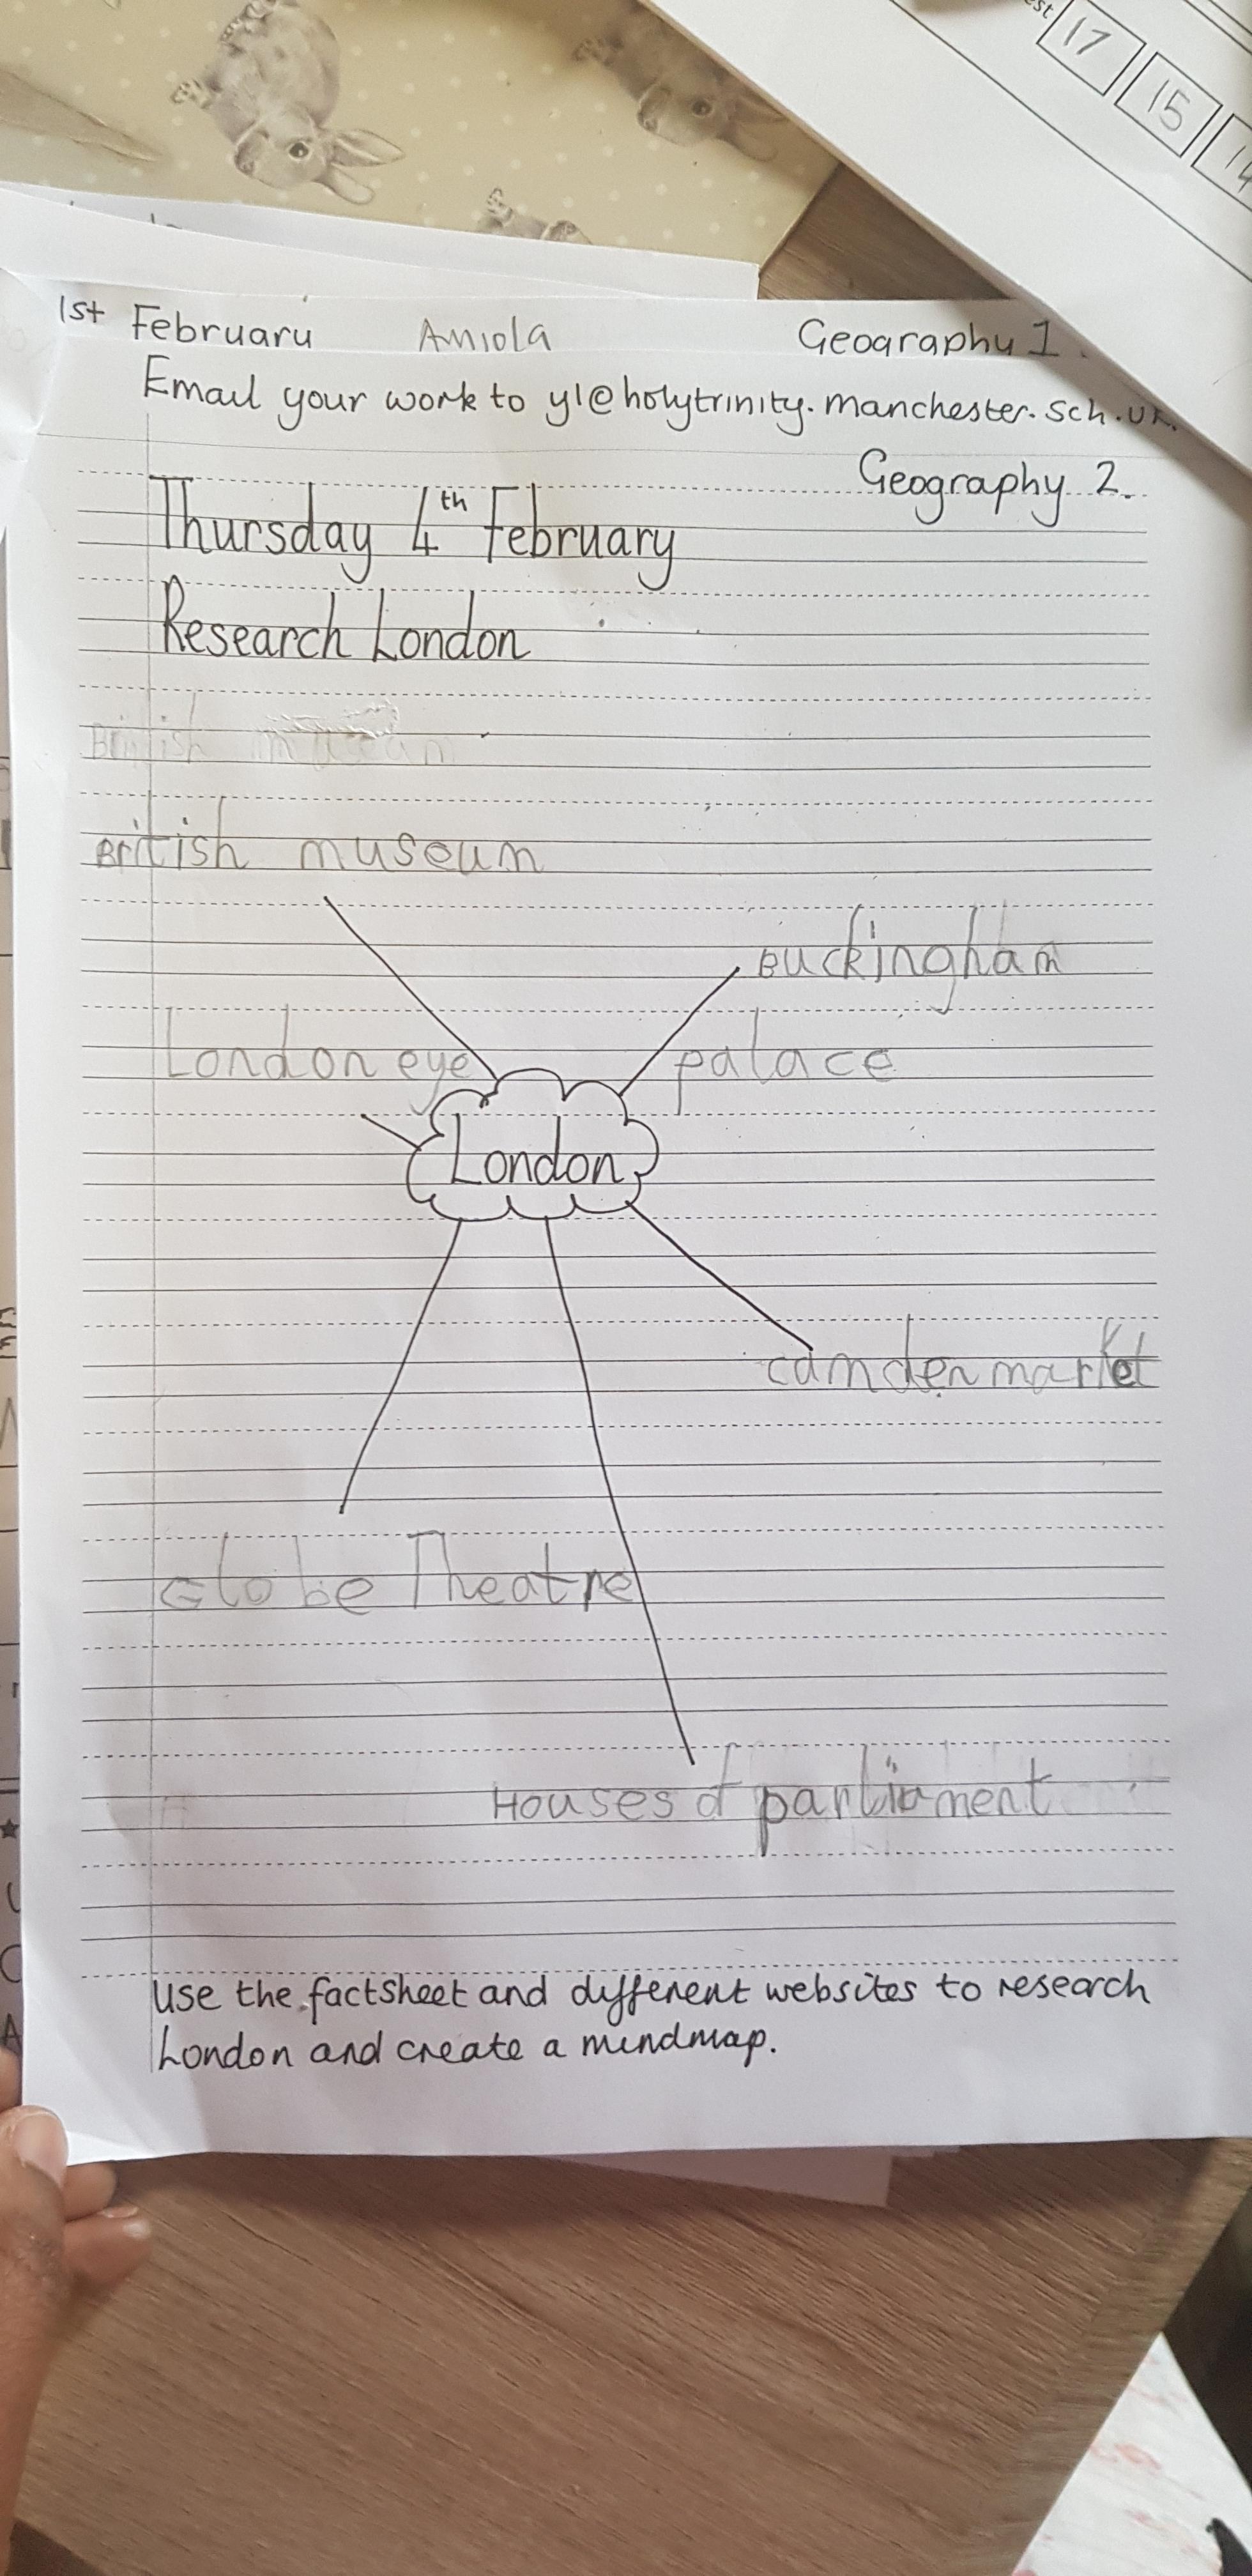 17 15 14
1st February Aniola Geography 1.
Email your work to y1@holytrinity.manchester.sch.uk.
Geography 2.
Thursday 4th February
Research London
British museum
British museum
Buckingham
London eye palace
London
camden market
Globe Theatre
Houses of parliament
Use the factsheet and different websites to research
London and create a mindmap.